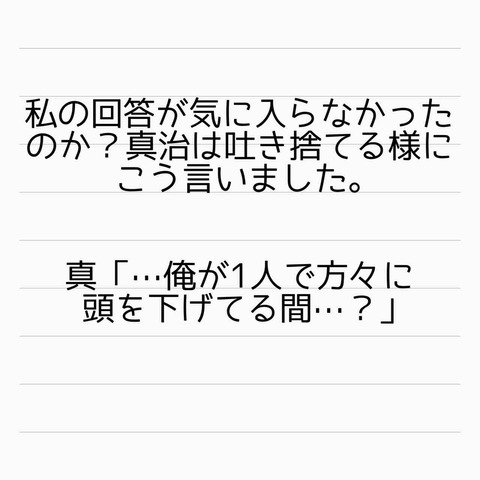 私の回答が気に入らなかった
のか？真治は吐き捨てる様に
こう言いました。
真「…俺が1人で方々に
頭を下げてる間…？」